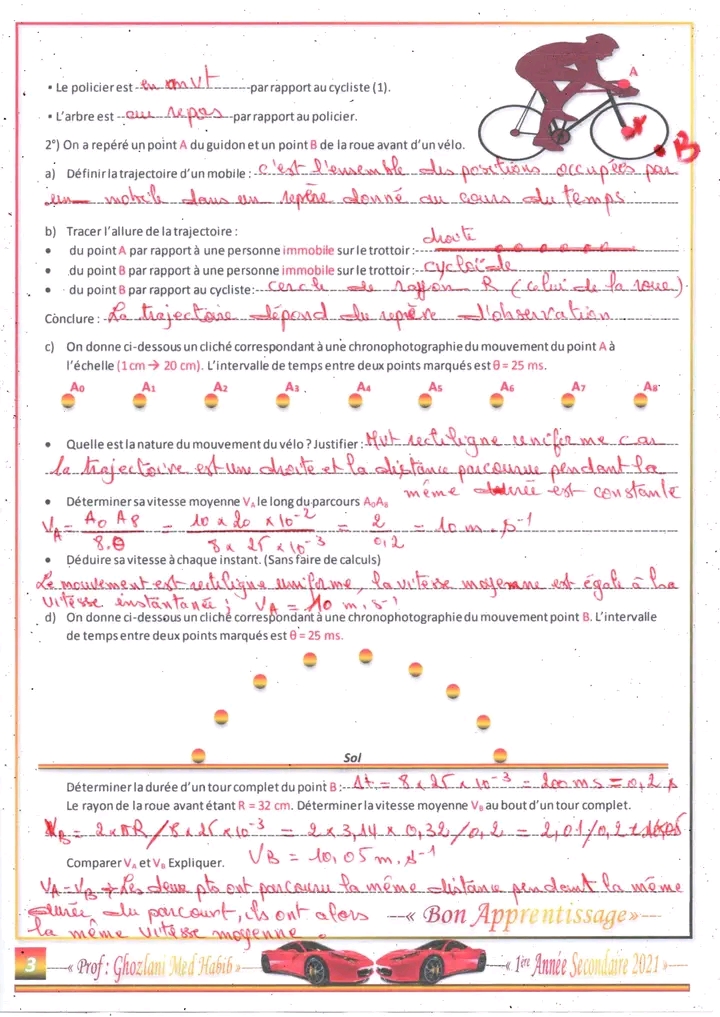 • Le policier est en mvt par rapport au cycliste (1).
A
• L'arbre est au repos par rapport au policier.
B
2°) On a repéré un point A du guidon et un point B de la roue avant d'un vélo.
a) Définir la trajectoire d'un mobile : c'est l'ensemble des positions occupées par
un mobile dans un repère donné au cours du temps.
b) Tracer l'allure de la trajectoire :
droite
• du point A par rapport à une personne immobile sur le trottoir :
• du point B par rapport à une personne immobile sur le trottoir : cycloïde
• du point B par rapport au cycliste: cercle de rayon R (celui de la roue)
Conclure : La trajectoire dépend du repère d'observation
c) On donne ci-dessous un cliché correspondant à une chronophotographie du mouvement du point A à
l'échelle (1 cm → 20 cm). L'intervalle de temps entre deux points marqués est θ = 25 ms.
A0 A1 A2 A3 A4 A5 A6 A7 A8
• Quelle est la nature du mouvement du vélo ? Justifier : Mvt rectiligne uniforme car
la trajectoire est une droite et la distance parcourue pendant la
même durée est constante
• Déterminer sa vitesse moyenne VA le long du parcours A0A8
VA = A0A8 / 8.θ = 10 x 20 x 10⁻² / 8 x 25 x 10⁻³ = 2 / 0,2 = 10 m.s⁻¹
• Déduire sa vitesse à chaque instant. (Sans faire de calculs)
Le mouvement est rectiligne uniforme, la vitesse moyenne est égale à la
vitesse instantanée ; VA = 10 m.s⁻¹
d) On donne ci-dessous un cliché correspondant à une chronophotographie du mouvement point B. L'intervalle
de temps entre deux points marqués est θ = 25 ms.
Sol
Déterminer la durée d'un tour complet du point B : Δt = 8 x 25 x 10⁻³ = 200 ms = 0,2 s
Le rayon de la roue avant étant R = 32 cm. Déterminer la vitesse moyenne VB au bout d'un tour complet.
VB = 2xπR / 8 x 25 x 10⁻³ = 2 x 3,14 x 0,32 / 0,2 = 2,01 / 0,2
Comparer VA et VB Expliquer. VB = 10,05 m.s⁻¹
VA = VB → Les deux pts ont parcouru la même distance pendant la même
durée du parcourt, ils ont alors
« Bon Apprentissage »
la même vitesse moyenne.
3 « Prof : Ghozlani Med Habib » « 1ère Année Secondaire 2021 »